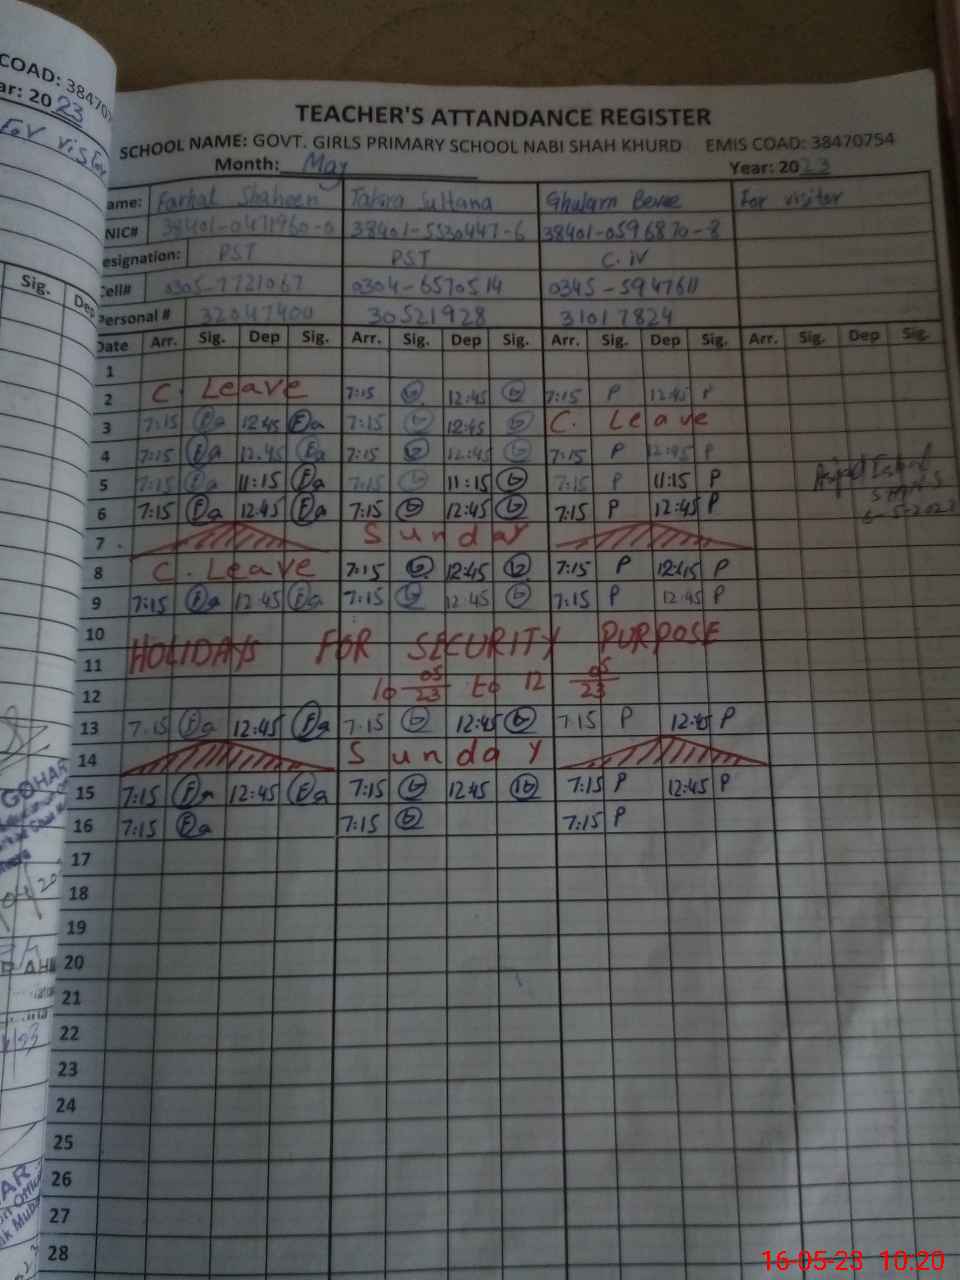 COAD: 38470
ar: 2023
For visitor
Sig.
Dep
TEACHER'S ATTANDANCE REGISTER
SCHOOL NAME: GOVT. GIRLS PRIMARY SCHOOL NABI SHAH KHURD EMIS COAD: 38470754
Month: May Year: 2023
ame: Farhat Shaheen Tahira Sultana Ghulam For visitor
NIC# 38401-5530447-6 38401-0596870-8
esignation: PST PST C.IV
Cell# 0305-7721067 0304-6570514 0345-5947611
Personal # 32047400 30521928 31017824
Date Arr. Sig. Dep Sig. Arr. Sig. Dep Sig. Arr. Sig. Dep Sig. Arr. Sig. Dep Sig.
1
2 C. Leave 7:15 12:45 7:15 P 12:45 P
3 7:15 12:45 7:15 12:45 C. Leave
4 7:15 12.45 7:15 12:45 7:15 P 12:45 P
5 7:15 11:15 7:15 11:15 7:15 P 11:15 P
6 7:15 12:45 7:15 12:45 7:15 P 12:45 P
7 Sunday
8 C. Leave 7:15 12:45 7:15 P 12:45 P
9 7:15 12:45 7:15 12:45 7:15 P 12:45 P
10
HOLIDAYS FOR SECURITY PURPOSE
11
12 10 05/23 to 12 05/23
13 7.15 12:45 7.15 12:45 7:15 P 12:45 P
14 Sunday
15 7:15 12:45 7:15 12:45 7:15 P 12:45 P
16 7:15 7:15 7:15 P
17
18
19
20
21
22
23
24
25
26
27
28
6-5-2023
GOHAR
16-05-23 10:20